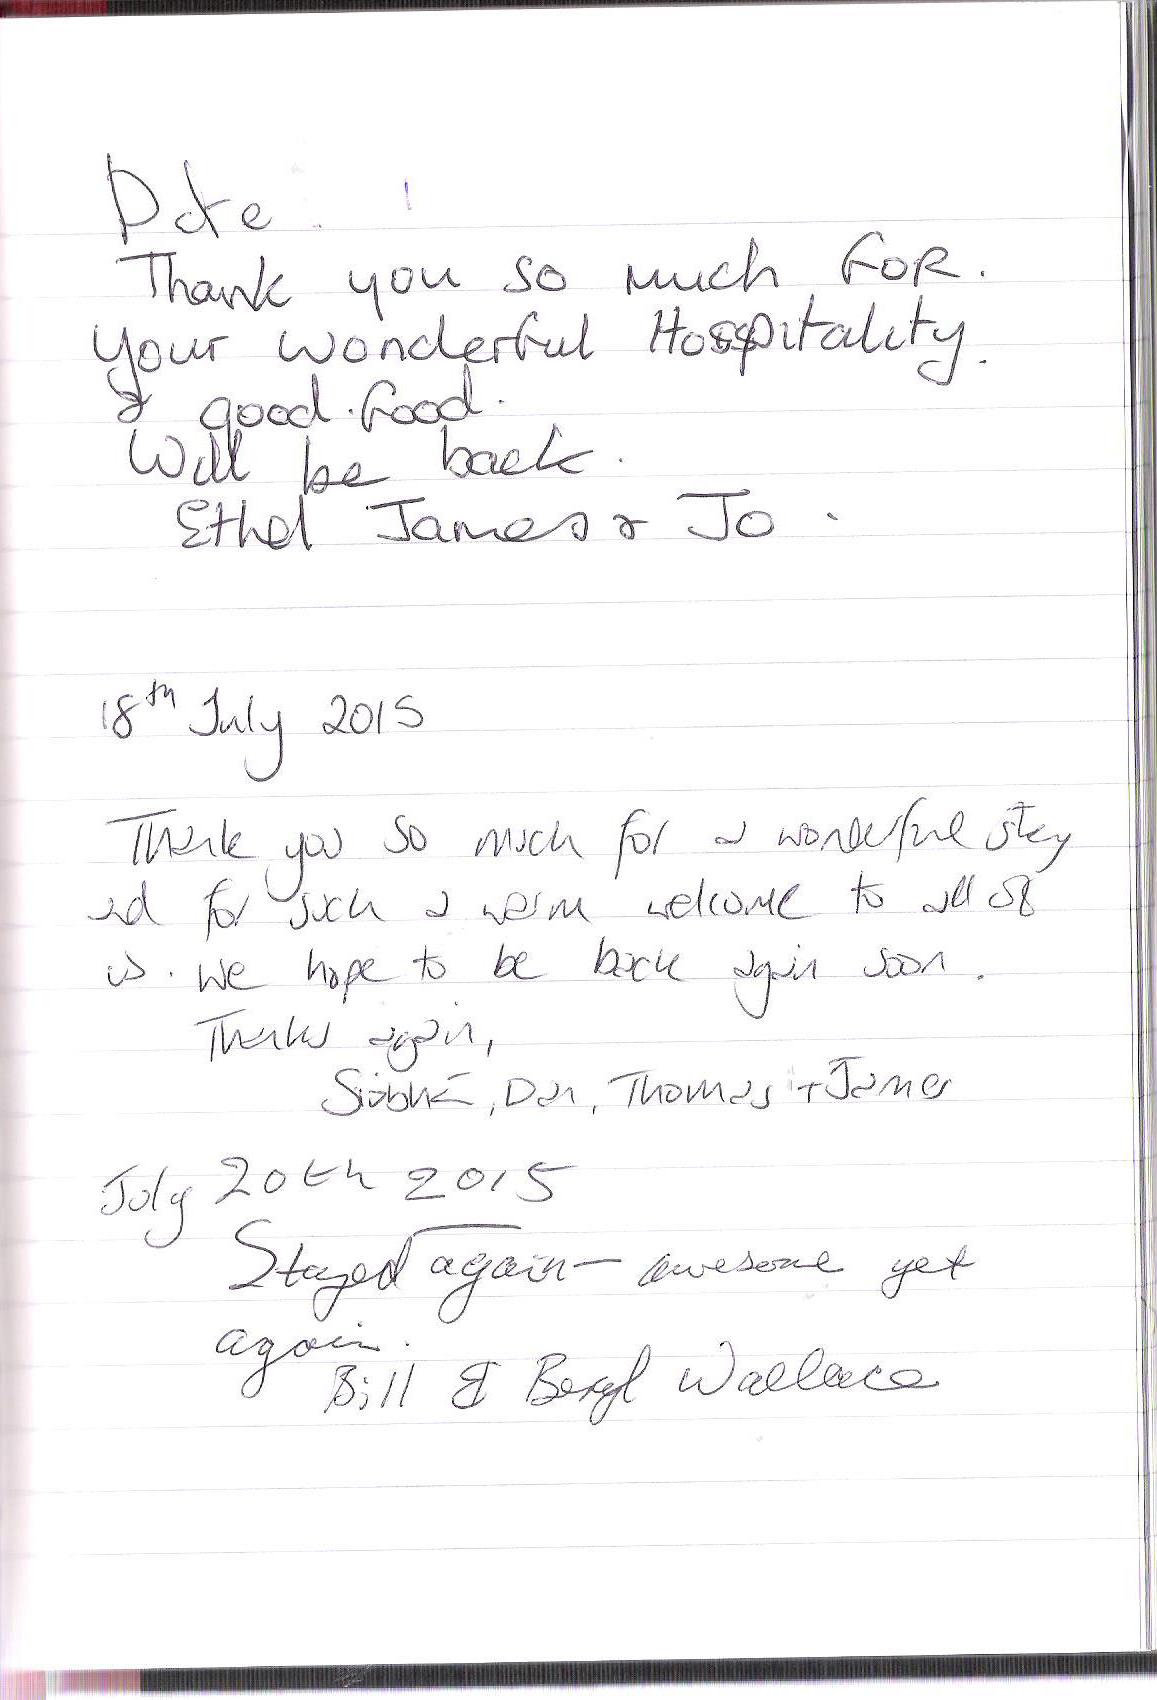 Pete
Thank you so much FOR.
your wonderful Hospitality.
& good food.
Will be back.
Ethel James & Jo.
18th July 2015
Thank you so much for a wonderful stay
and for such a warm welcome to all of
us. We hope to be back again soon.
Thanks again,
Siobhán, Dan, Thomas + James
July 20th 2015
Stayed again - awesome yet
again.
Bill & Beryl Wallace